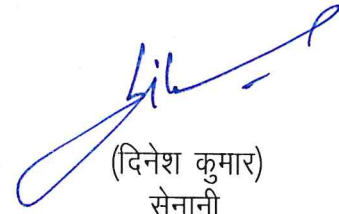 (दिनेश कुमार)
सेनानी